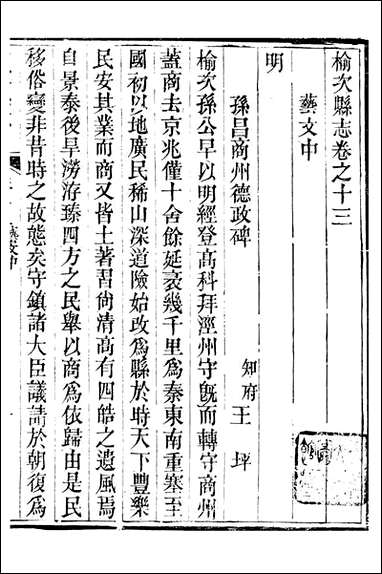 榆次縣志卷之十三
藝文中
明
孫昌商州德政碑 知府王 坪
榆次孫公早以明經登高科拜涇州守旣而轉守商州
蓋商去京兆僅十舍餘延袤幾千里爲秦東南重塞至
國初以地廣民稀山深道險始改爲縣於時天下豐樂
民安其業而商又皆土著習尙清高有四皓之遺風焉
自景泰後旱澇洊臻四方之民舉以商爲依歸由是民
移俗變非昔時之故態矣守鎭諸大臣議請於朝復爲
藝文中